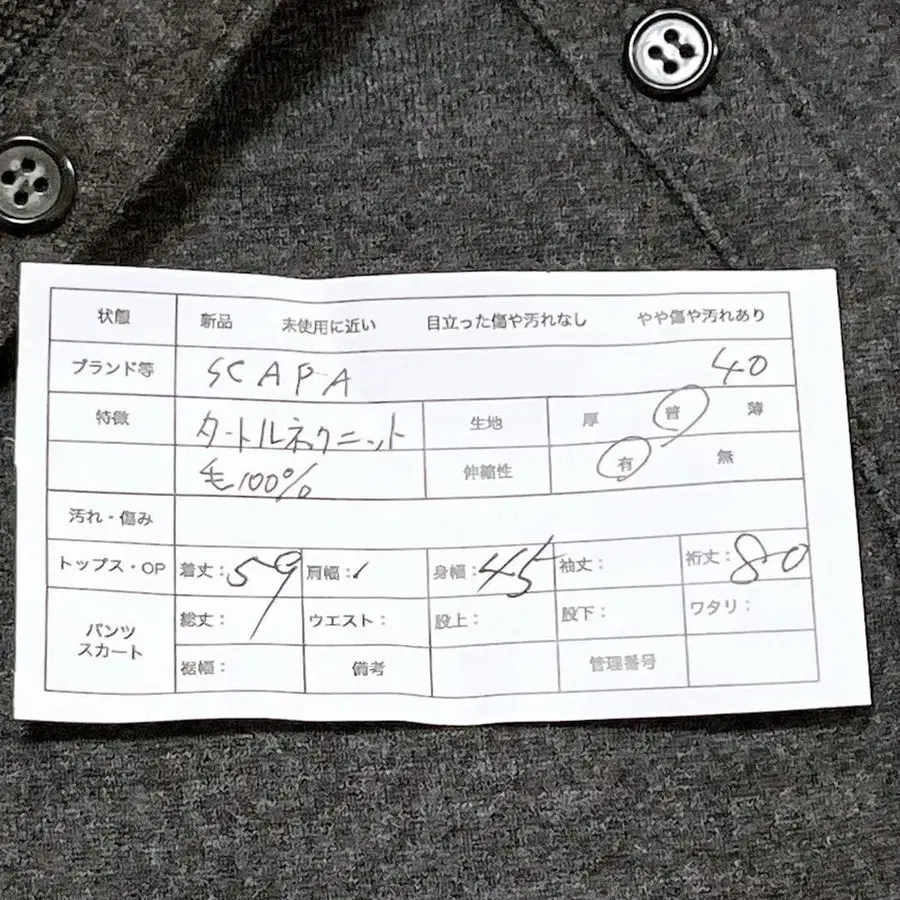 状態 新品 未使用に近い 目立った傷や汚れなし やや傷や汚れあり
ブランド等 SCAPA 40
特徴 タートルネックニット 生地 厚 普 薄
毛100% 伸縮性 有 無
汚れ・傷み
トップス・OP 着丈：59 肩幅： 身幅：45 袖丈： 裄丈：80
パンツ スカート 総丈： ウエスト： 股上： 股下： ワタリ：
裾幅： 備考 管理番号